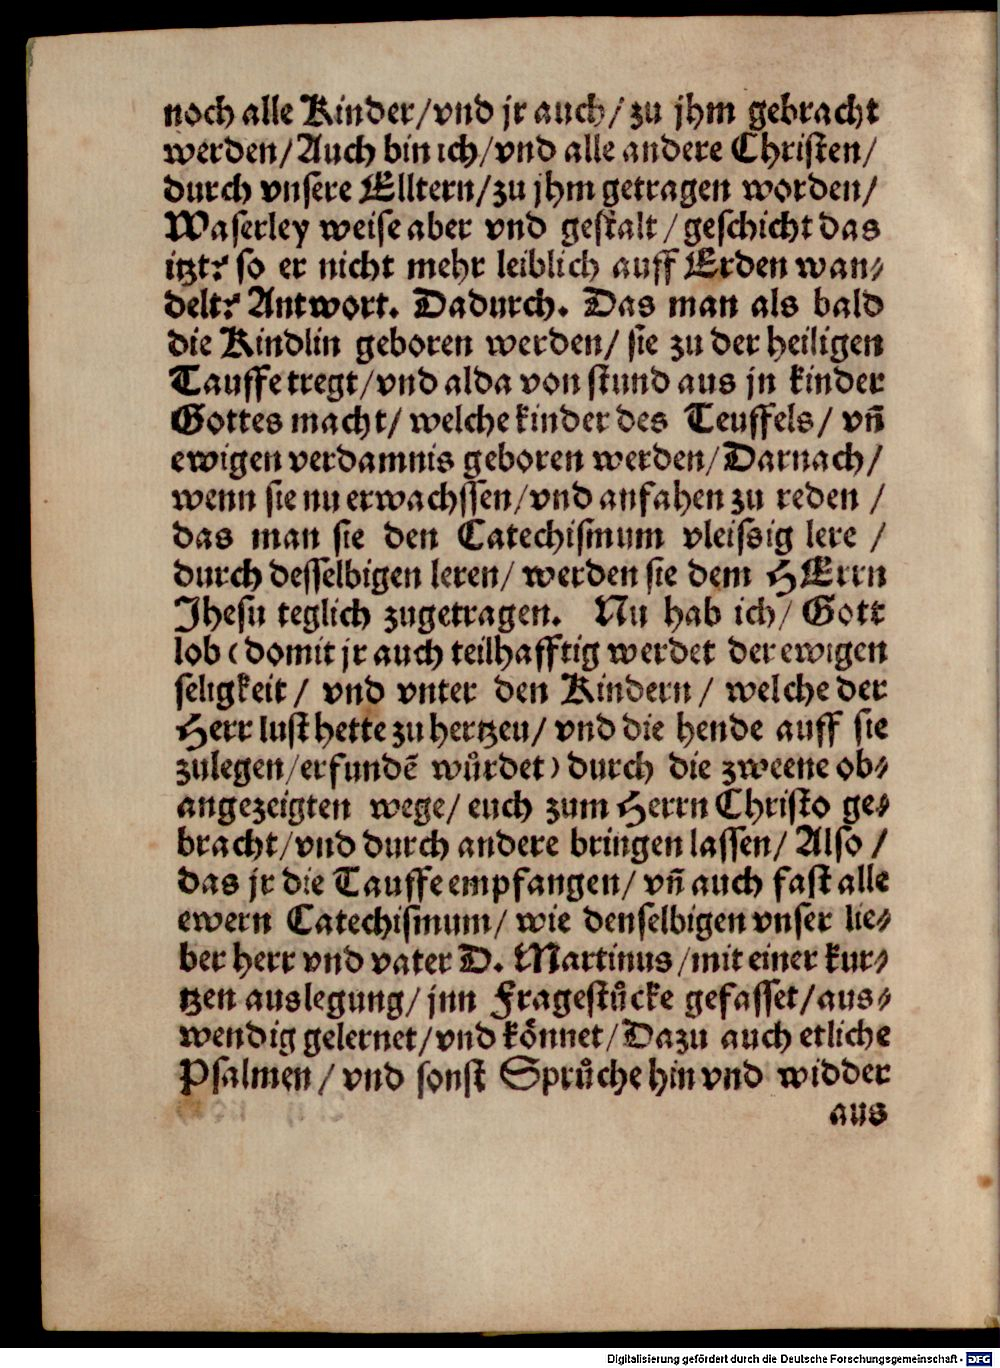 noch alle Kinder/vnd jr auch/zu jhm gebracht
werden/Auch bin ich/vnd alle andere Christen/
durch vnsere Elltern/zu jhm getragen worden/
Waserley weise aber vnd gestalt/geschicht das
itzt? so er nicht mehr leiblich auff Erden wan⸗
delt? Antwort. Dadurch. Das man als bald
die Kindlin geboren werden/ sie zu der heiligen
Tauffe tregt/vnd alda von stund aus jn kinder
Gottes macht/ welche kinder des Teuffels/ vn̄
ewigen verdamnis geboren werden/Darnach/
wenn sie nu erwachssen/vnd anfahen zu reden /
das man sie den Catechismum vleissig lere /
durch desselbigen leren/ werden sie dem HErrn
Jhesu teglich zugetragen. Nu hab ich/ Gott
lob (domit jr auch teilhafftig werdet der ewigen
seligkeit/ vnd vnter den Kindern/ welche der
Herr lust hette zu hertzen/ vnd die hende auff sie
zulegen/erfundē wuͤrdet) durch die zweene ob⸗
angezeigten wege/ euch zum Herrn Christo ge⸗
bracht/vnd durch andere bringen lassen/ Also /
das jr die Tauffe empfangen/ vn̄ auch fast alle
ewern Catechismum/ wie denselbigen vnser lie⸗
ber herr vnd vater D. Martinus/mit einer kur⸗
tzen auslegung/ jnn Fragestuͤcke gefasset/aus⸗
wendig gelernet/vnd koͤnnet/Dazu auch etliche
Psalmen/ vnd sonst Spruͤche hin vnd widder
aus
Digitalisierung gefördert durch die Deutsche Forschungsgemeinschaft - DFG